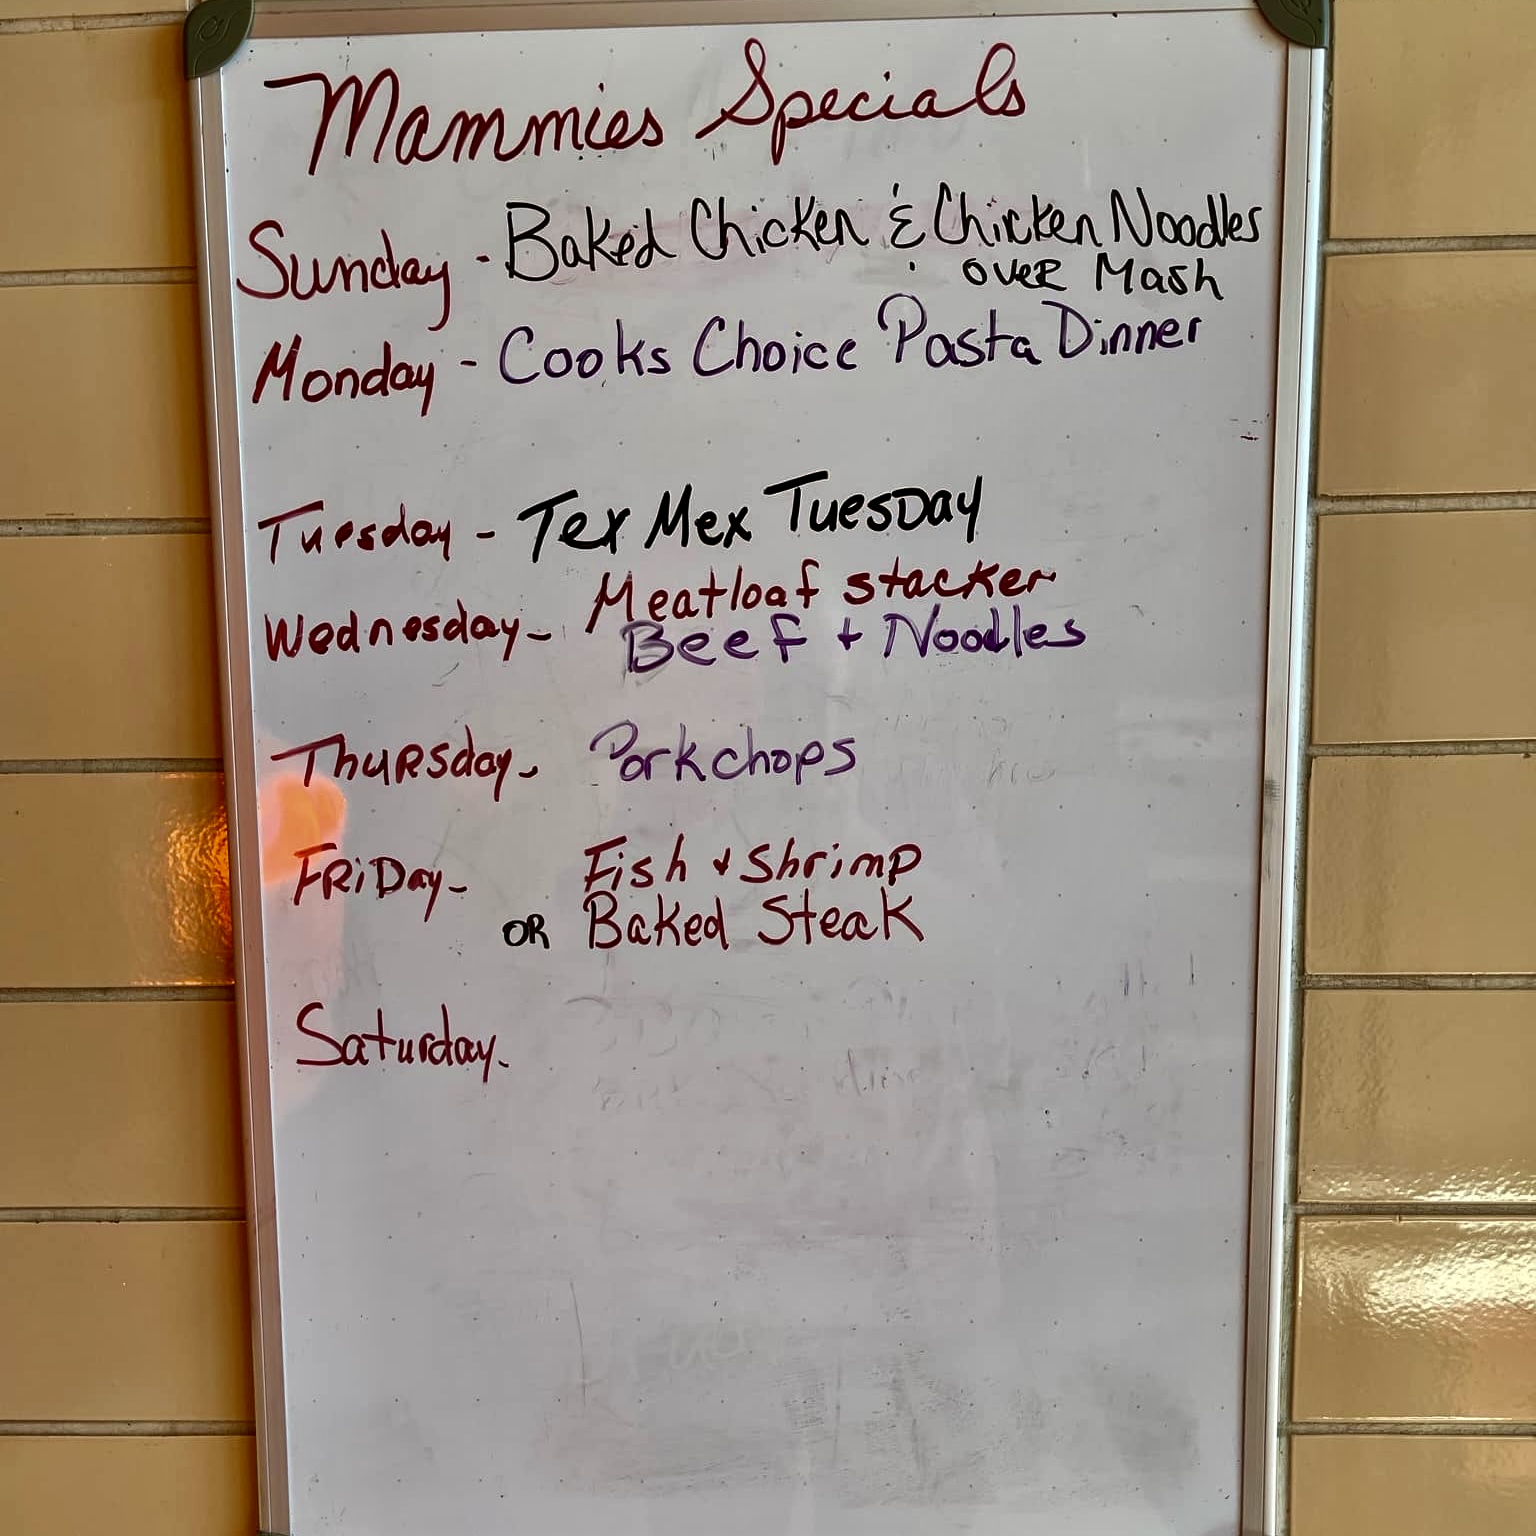 Mammies Specials
Sunday - Baked Chicken & Chicken Noodles
over Mash
Monday - Cooks Choice Pasta Dinner
Tuesday - Tex Mex Tuesday
Meatloaf stacker
Wednesday - Beef + Noodles
Thursday - Porkchops
Friday - Fish + Shrimp
OR Baked Steak
Saturday -